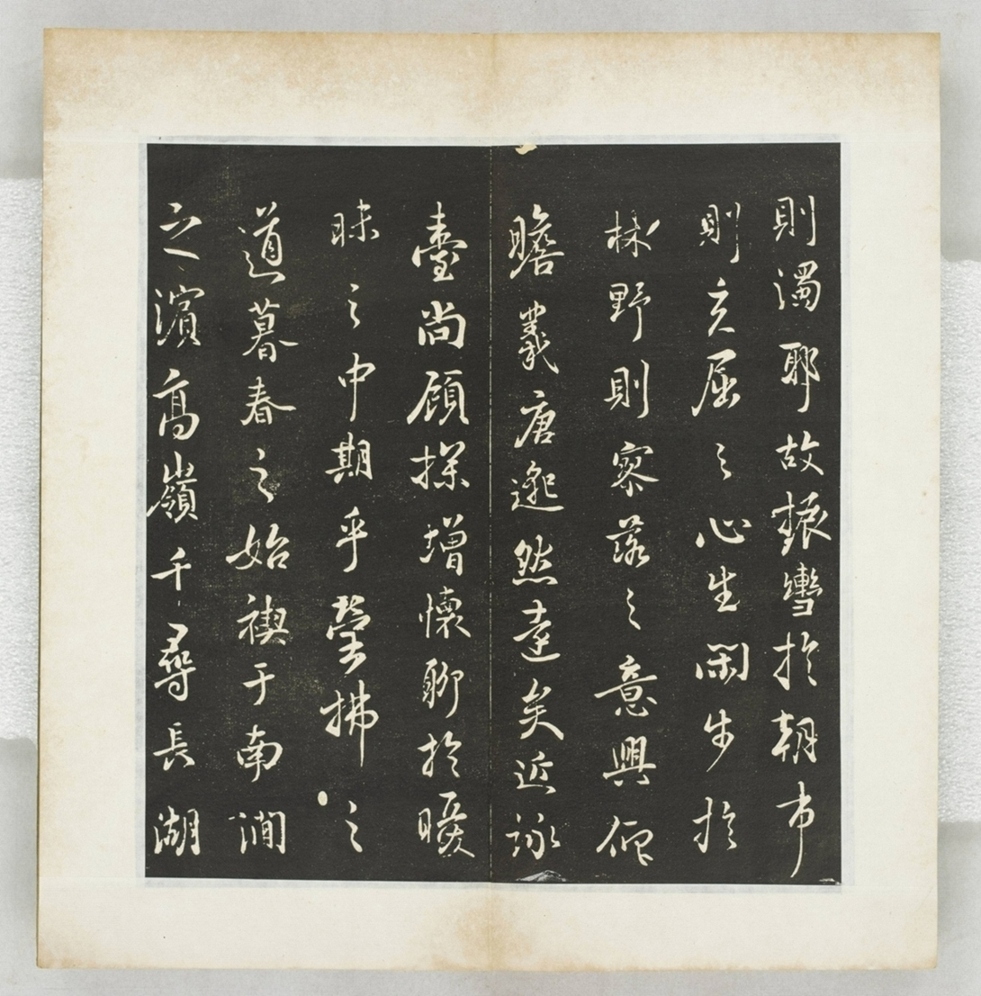 則濁耶故振轡於朝市
則充屈之心生閑步於
林野則寥落之意興仰
瞻羲唐邈然遠矣近詠
臺尚顧探增懷聊於曖
昧之中期乎瑩拂之
道暮春之始禊于南澗
之濱高嶺千尋長湖